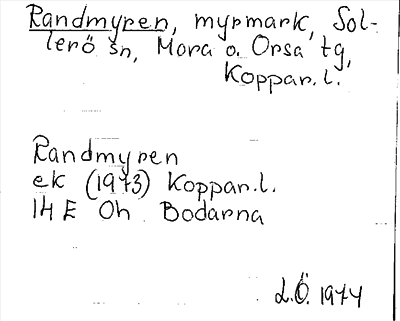 Randmyren, myrmark, Sol-
lerö sn, Mora o. Orsa tg,
Koppar.l.
Randmyren
ek (1973) Koppar.l.
14 E Oh Bodarna
L.Ö. 1974